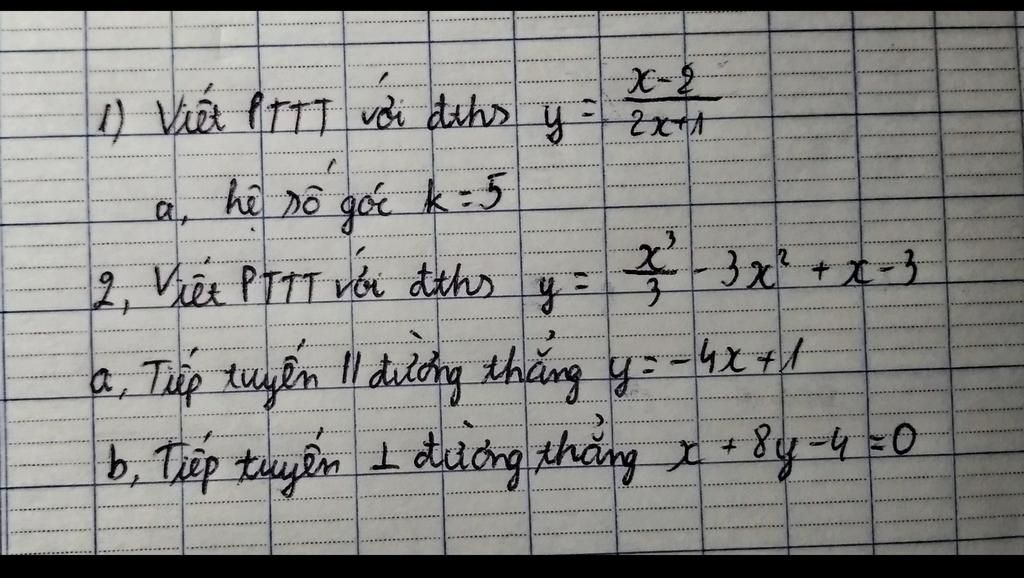 1) Viết PTTT với đths y = \frac{x-2}{2x+1}
a, hệ số góc k = 5
2, Viết PTTT với đths y = \frac{x³}{3} - 3x² + x - 3
a, Tiếp tuyến // đường thẳng y = -4x + 1
b, Tiếp tuyến ⊥ đường thẳng x + 8y - 4 = 0